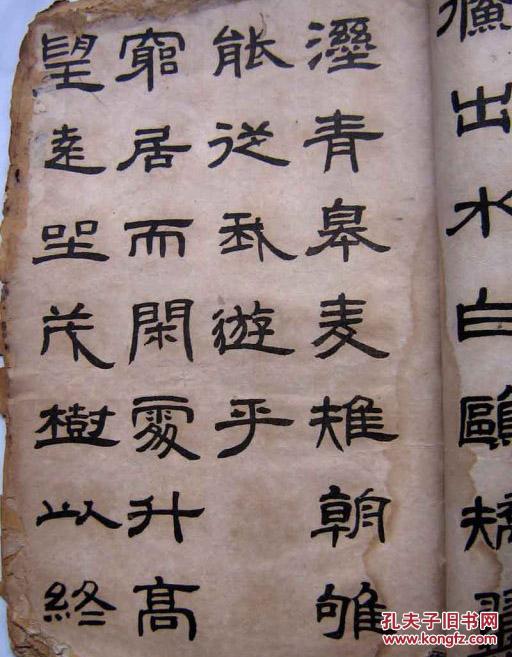 出水白鷗矯翼
溼青皋麦雉朝雊
能從我遊乎
窮居而閑處升高
望遠坐茂樹以終
孔夫子旧书网
www.kongfz.com